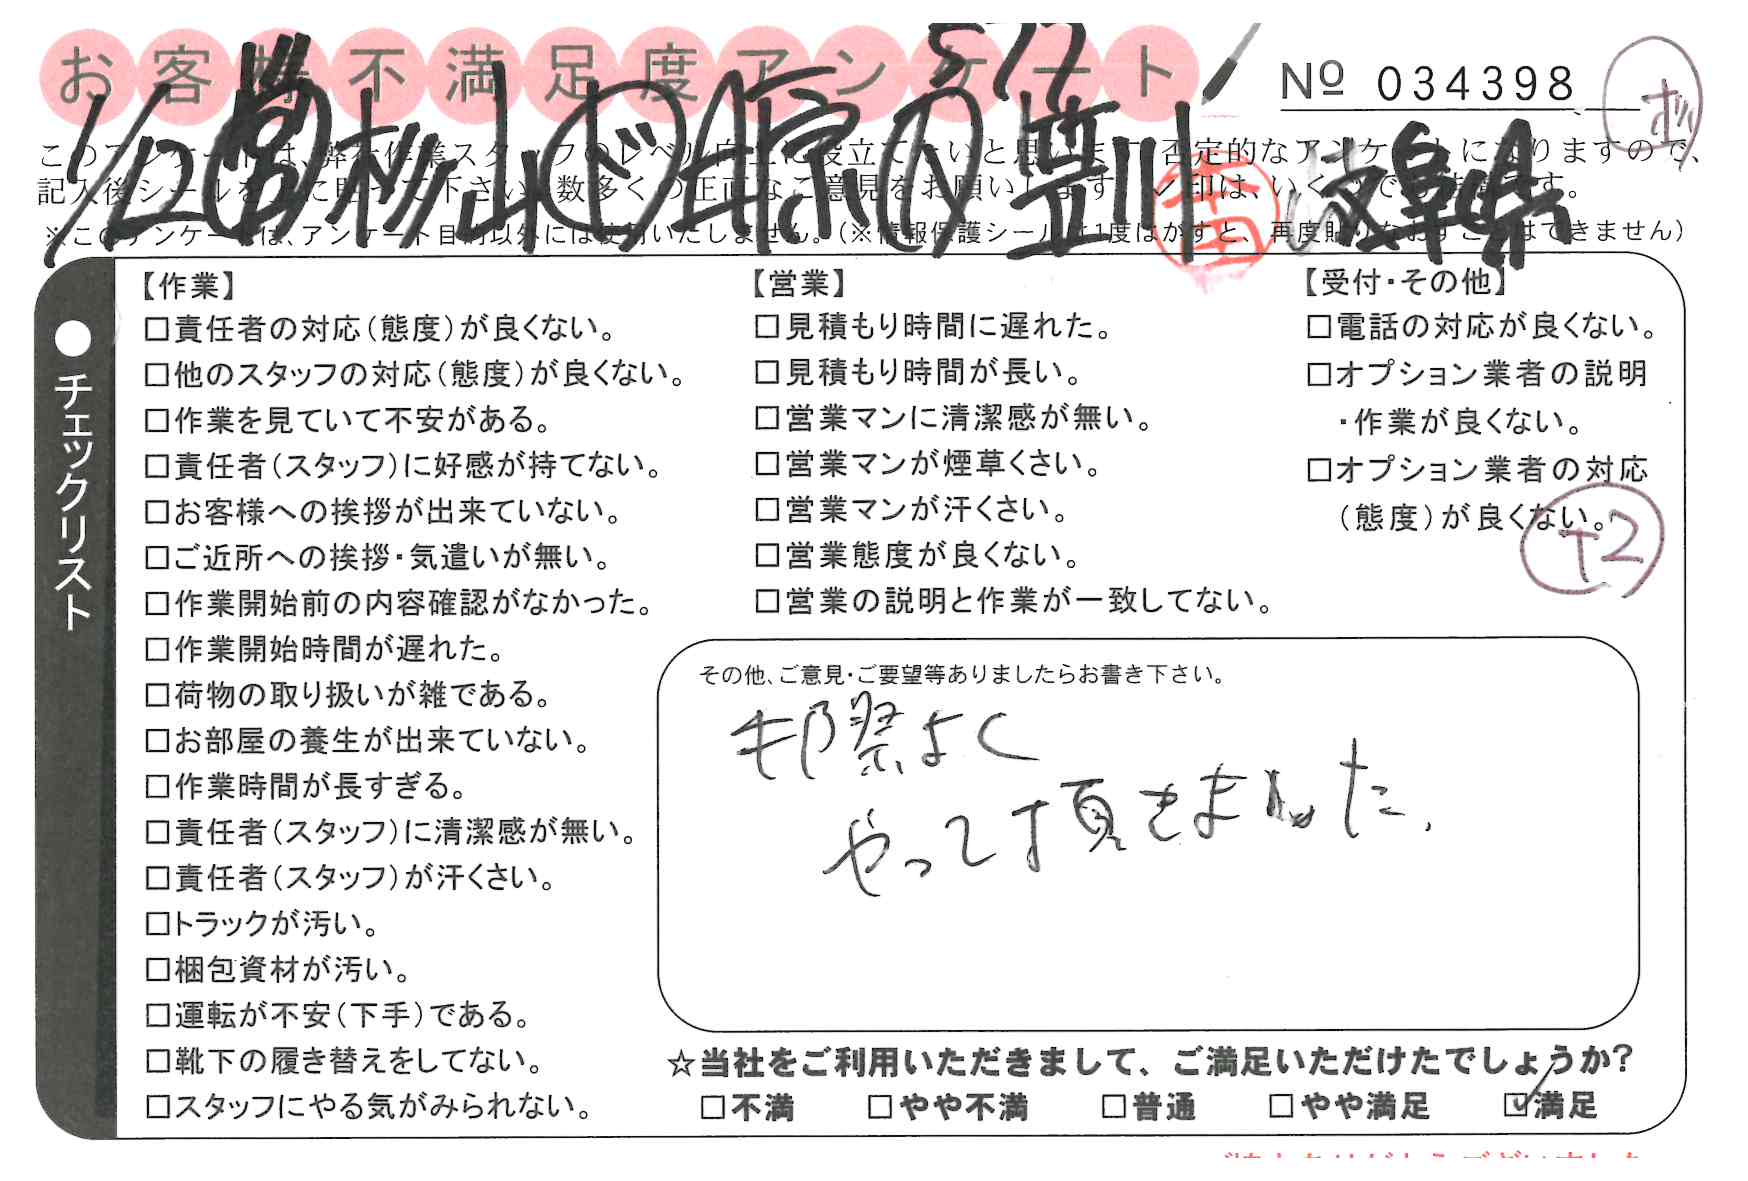 お客様不満足度アンケート
Nº 034398
このアンケートは、弊社作業スタッフのレベル向上に役立てたいと思います。否定的なアンケートになりますので、
記入後シールを上に貼って下さい。数多くの正直なご意見をお願いします。
※このアンケートは、アンケート目的以外には使用いたしません。(※情報保護シールは1度はがすと、再度貼りなおすことはできません)
1/22
岐阜県
●チェックリスト
【作業】
□責任者の対応(態度)が良くない。
□他のスタッフの対応(態度)が良くない。
□作業を見ていて不安がある。
□責任者(スタッフ)に好感が持てない。
□お客様への挨拶が出来ていない。
□ご近所への挨拶・気遣いが無い。
□作業開始前の内容確認がなかった。
□作業開始時間が遅れた。
□荷物の取り扱いが雑である。
□お部屋の養生が出来ていない。
□作業時間が長すぎる。
□責任者(スタッフ)に清潔感が無い。
□責任者(スタッフ)が汗くさい。
□トラックが汚い。
□梱包資材が汚い。
□運転が不安(下手)である。
□靴下の履き替えをしてない。
□スタッフにやる気がみられない。
【営業】
□見積もり時間に遅れた。
□見積もり時間が長い。
□営業マンに清潔感が無い。
□営業マンが煙草くさい。
□営業マンが汗くさい。
□営業態度が良くない。
□営業の説明と作業が一致してない。
【受付・その他】
□電話の対応が良くない。
□オプション業者の説明
・作業が良くない。
□オプション業者の対応
(態度)が良くない。
T2
その他、ご意見・ご要望等ありましたらお書き下さい。
手際よく
やって頂きました。
☆当社をご利用いただきまして、ご満足いただけたでしょうか?
□不満 □やや不満 □普通 □やや満足 ☑満足